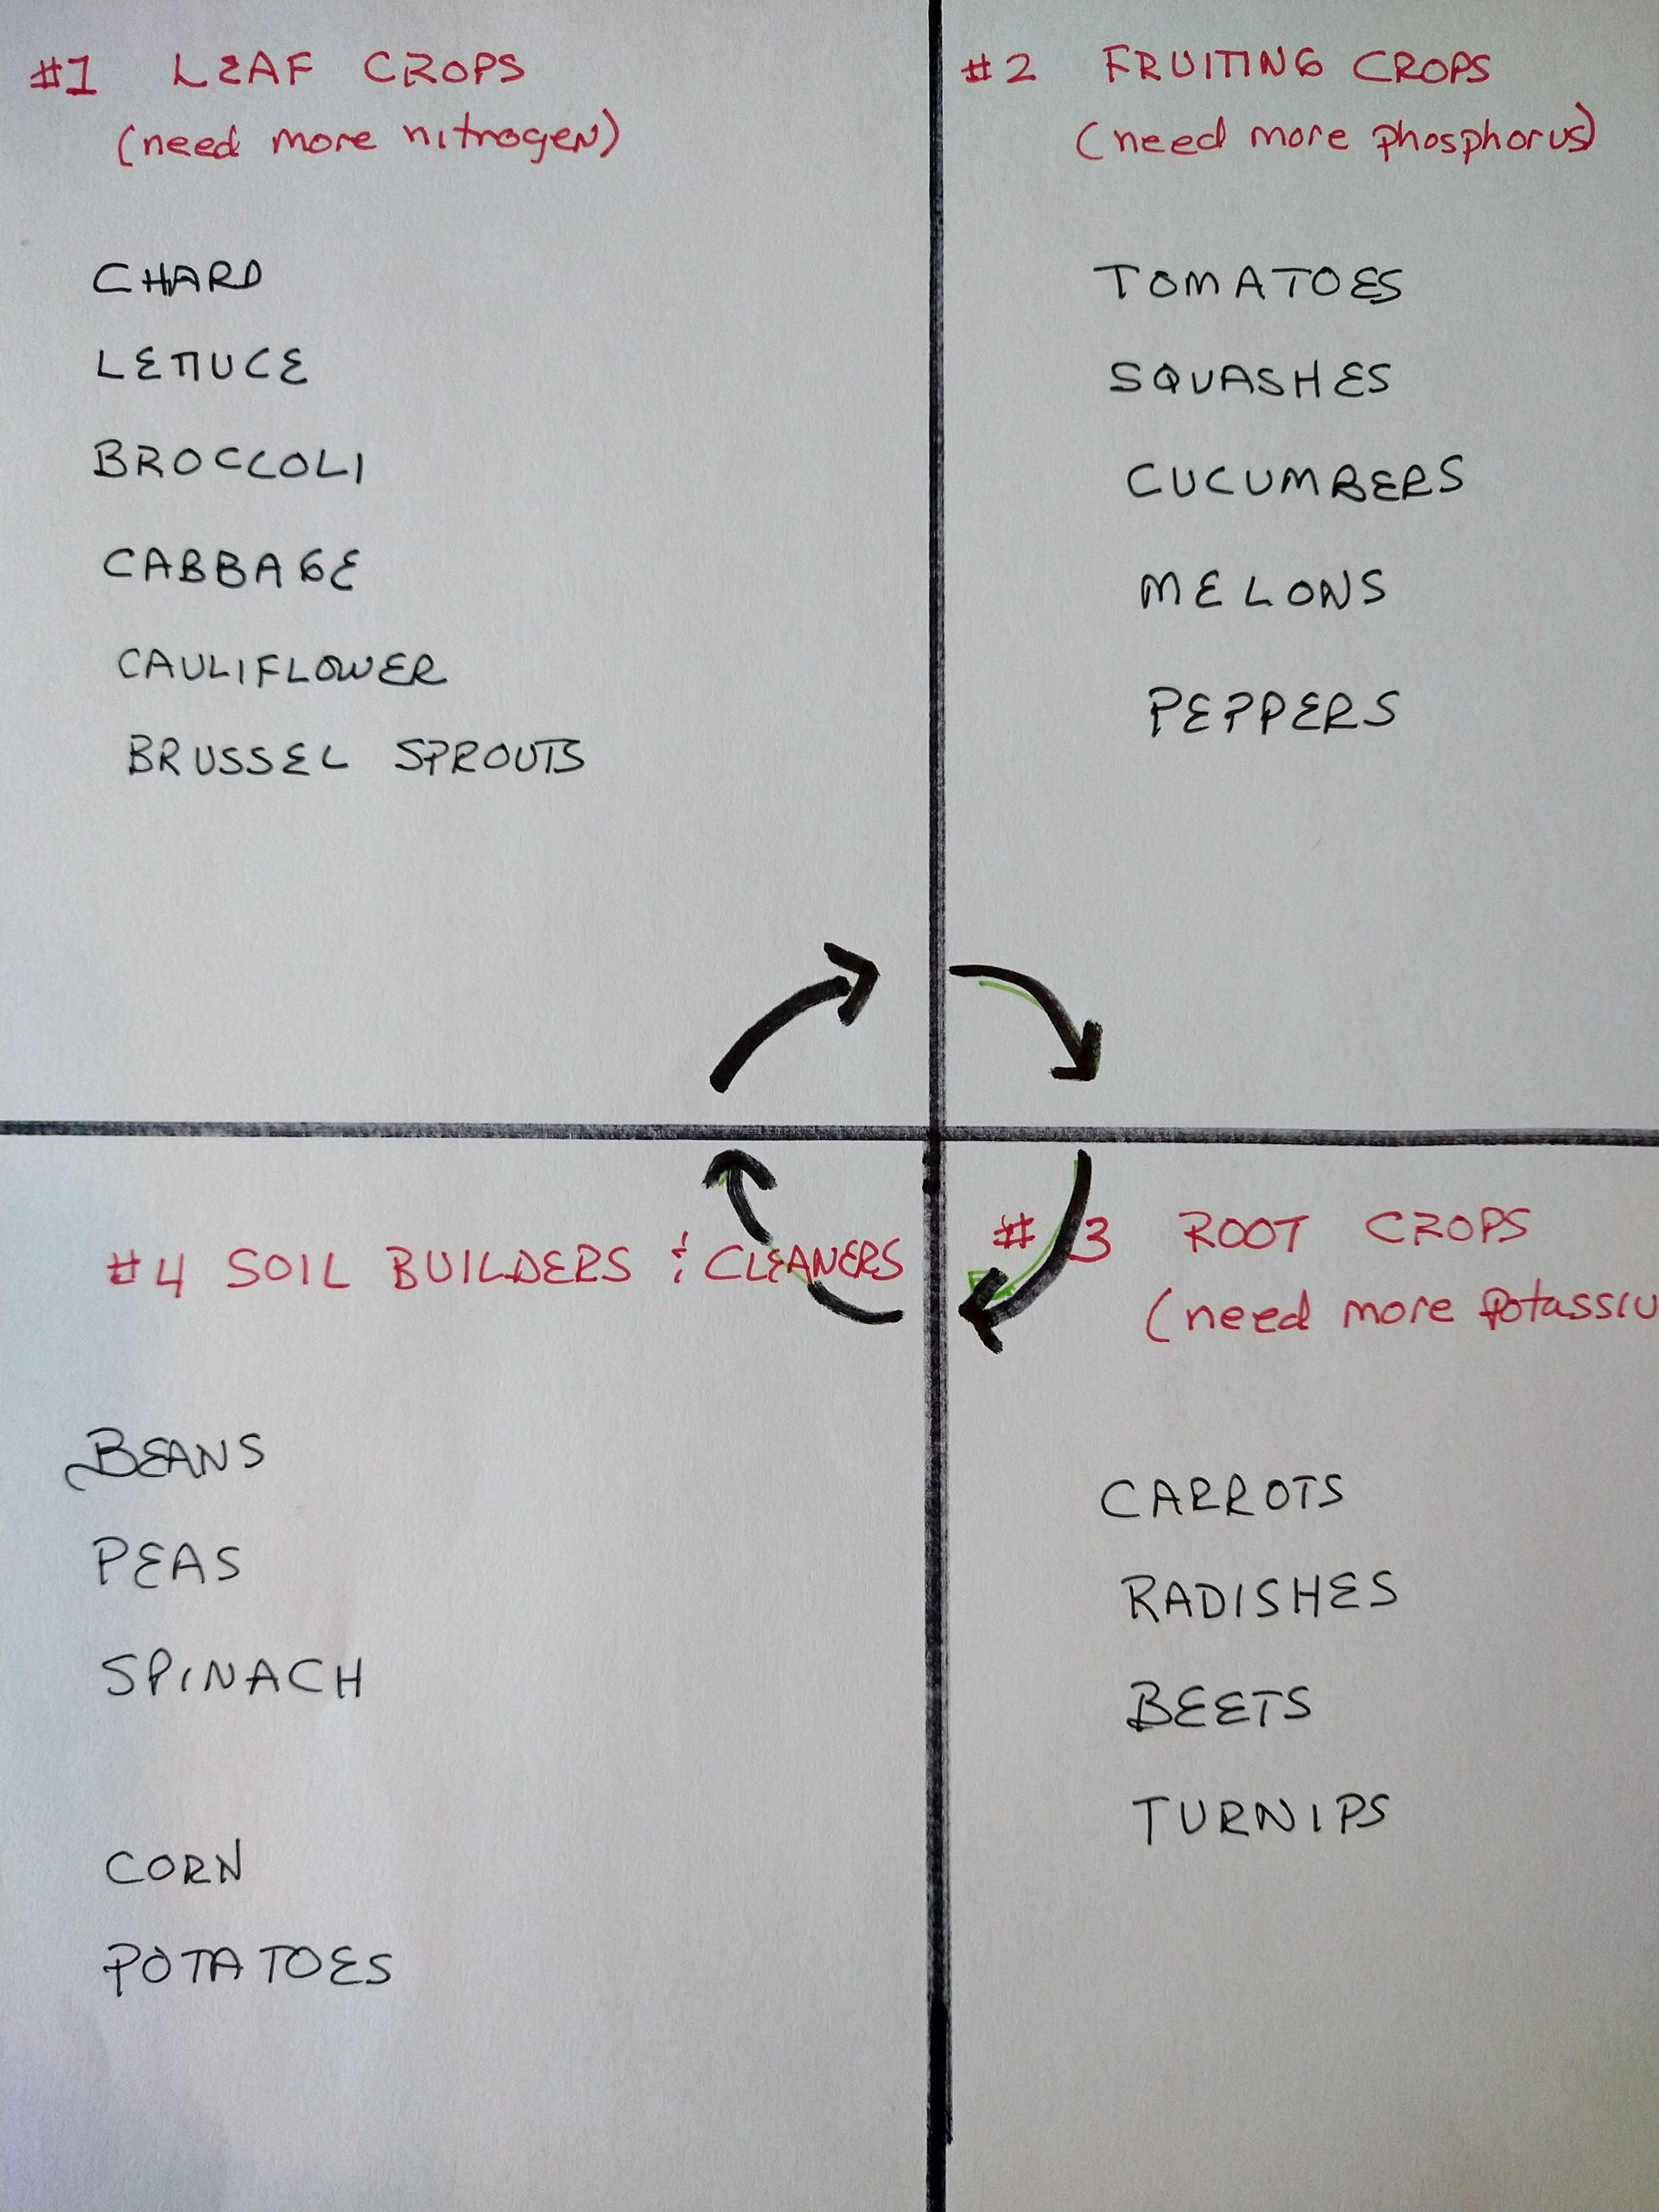 #1 LEAF CROPS
(need more nitrogen)
CHARD
LETTUCE
BROCCOLI
CABBAGE
CAULIFLOWER
BRUSSEL SPROUTS
#2 FRUITING CROPS
(need more phosphorus)
TOMATOES
SQUASHES
CUCUMBERS
MELONS
PEPPERS
#3 ROOT CROPS
(need more potassiu
CARROTS
RADISHES
BEETS
TURNIPS
#4 SOIL BUILDERS & CLEANERS
BEANS
PEAS
SPINACH
CORN
POTATOES